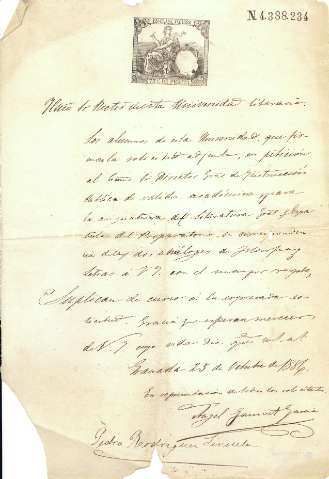 N 4.388.234
Iltmo Sr Rector de esta Universidad Literaria.
Los alumnos de esta Universidad, que fir-
man la solicitud adjunta, en petición
al Director Gral de Instrucción
Pública de validez académica para
la asignatura de Literatura Gral y Espa-
ñola del Preparatorio,
Letras á V. I. con el mayor respeto,
Suplican dé curso á la expresada so-
licitud. Gracia que esperan merecer
de V. I. cuya vida
Granada 23 de Octubre de 1886
En representación de todos los solicitantes
Angel Ganivet García
Pedro Rodriguez